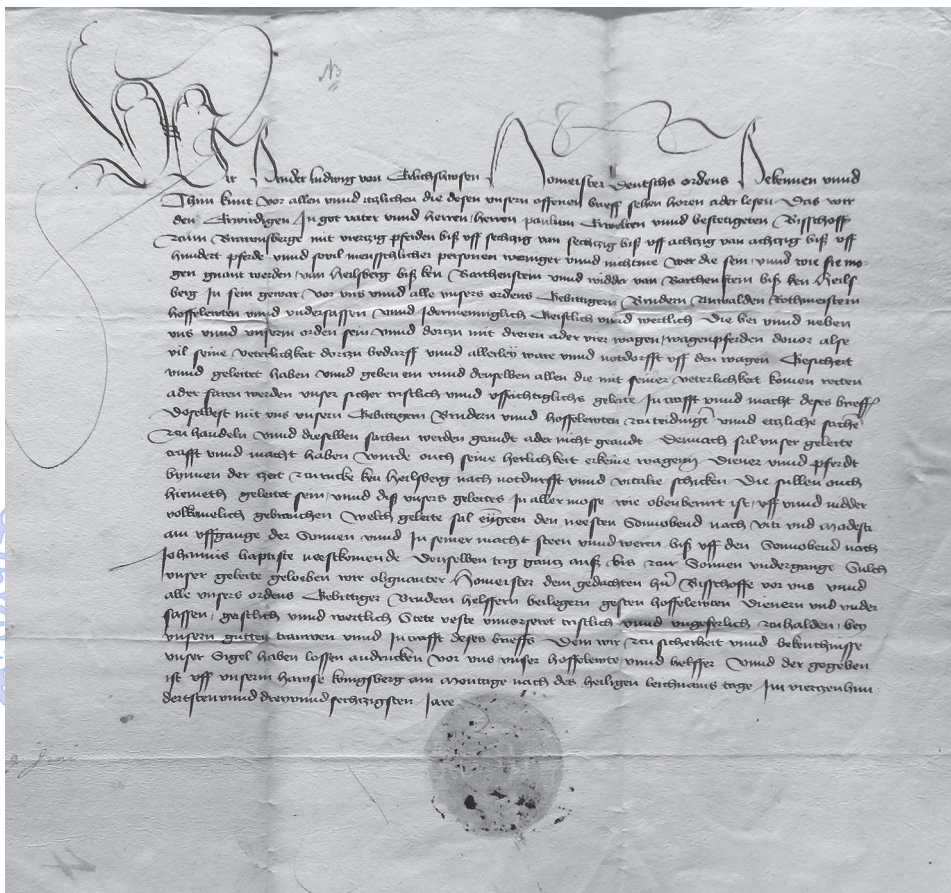 Wir Bruder ludwig von Erlichshwsen Homeister Deutschs ordens Bekennen vnnd
Thun kunt vor allen vnnd itzlichen die desen vnsern offenen brieff sehen horen ader lesen Das wir
den Erwirdigen In got vater vnnd herren herren paulum Erwelten vnnd bestetigeten Bisschoff
czum Brawnsberge mit vierczig pferden biß vff sechczig van sechczig biß vff achczig van achczig biß vff
hundert pferde vnnd sovil menschlicher personen weniger vnnd nichtme wer die sein vnnd wie sie mo-
gen gnant werden van heilsberg biß ken Barthenstein vnnd widder van Barthenstein biß ken heils
berg In sein gewar vor vns vnnd alle vnsers ordens Gebittigern Brudern Anwalden Rothmeistern
hoffelewten vnnd vndersassen vnnd Idermenniglich Geistlich vnnd wertlich Die bei vnnd neben
vns vnnd vnserm orden sein vnnd dorczu mit dreien ader vier wagen wagenpferden dovor alse
vil seine veterlichkeit dorczu bedarff vnnd allerley ware vnnd notdorfft vff den wagen Gesichert
vnnd geleitet haben vnnd geben em vnnd denselben allen die mit seiner veterlichkeit komen reiten
ader faren werden vnser sicher cristlich vnnd vffrichtiglichs geleite In crafft vnnd macht deses brieffs
Doselbest mit vns vnsern Gebittigern Brudern vnnd hoffelewten czu teidinge vnnd etzliche sache
czu handeln vnnd dieselben sachen werden geandt ader nicht geandt Dennach sal vnser geleite
crafft vnnd macht haben Wurde ouch seine herlichkeit erkeine wagenn Diener vnnd pferdt
bynnen der czeit czurucke ken heilsberg nach notdurfft vnnd vitalie schicken Die sullen ouch
hiemeth geleitet sein vnnd diß vnsers geleites In aller mosse wie obenberurt ist vff vnnd nidder
volkomelich gebrauchen Welch geleite sal eyngeen den neesten Sonnobend nach viti vnd Modesti
am vffgange der Sonnen vnnd In seiner macht steen vnnd weren biß vff den Sonnobend nach
Johannis baptiste neestkomende Denselben tag gancz auß bis czur Sonnen vndergange Sulch
vnser geleite geloeben wir obgnanter Homeister dem gedachten hern Bisschoffe vor vns vnnd
alle vnsers ordens Gebittiger Brudern helffern beilegern gesten hoffelewten Dienern vnd vnder
sassen geistlich vnnd wertlich Stete veste vnvorseret cristlich vnnd vngeferlich czu halden bey
vnsern gutten trauwen vnnd In crafft deses brieffs Dem wir czu sicherheit vnnd bekentnisse
vnser Sigel haben lossen andrucken vor vns vnser hoffelewte vnnd helffer Vnnd der gegeben
ist vff vnserm hawse konigsberg am Montage nach des heiligen leichnams tage Im vierczenhun-
dertsten vnnd dreyvnnd sechczigsten Jare